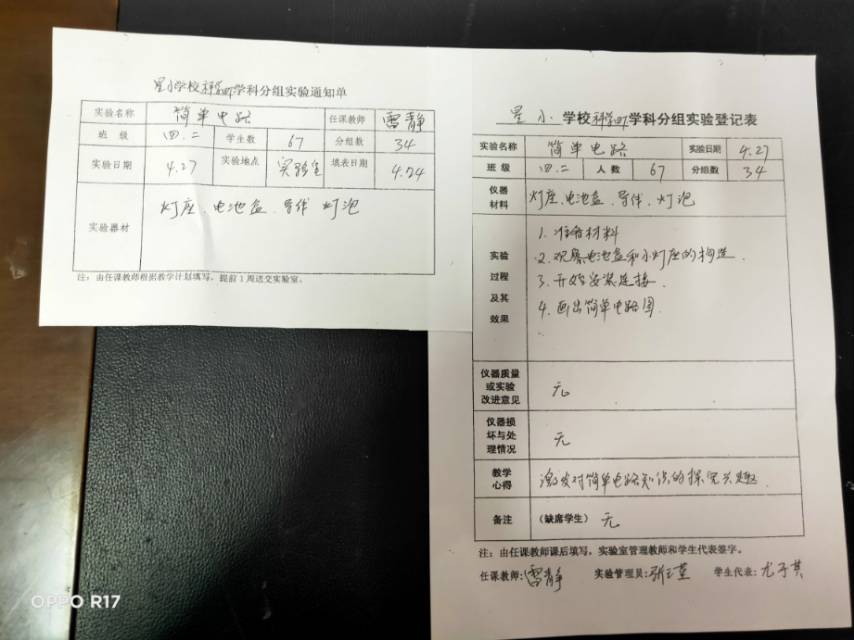 星小学校科学四学科分组实验通知单
实验名称 简单电路 任课教师 雷静
班 级 四.二 学生数 67 分组数 34
实验日期 4.27 实验地点 实验室 填表日期 4.24
实验器材 灯座、电池盒、导体、灯泡
注:由任课教师根据教学计划填写,提前1周送交实验室。
星小 学校科学四学科分组实验登记表
实验名称 简单电路 实验日期 4.27
班 级 四.二 人 数 67 分组数 34
仪器材料 灯座、电池盒、导体、灯泡
实验过程及其效果
1.准备材料
2.观察电池盒和小灯座的构造.
3.开始安装连接.
4.画出简单电路图.
仪器质量或实验改进意见 无
仪器损坏与处理情况 无
教学心得 激发对简单电路知识的探究兴趣.
备注 (缺席学生) 无
注:由任课教师课后填写,实验室管理教师和学生代表签字。
任课教师:雷静 实验管理员: 学生代表:
OPPO R17